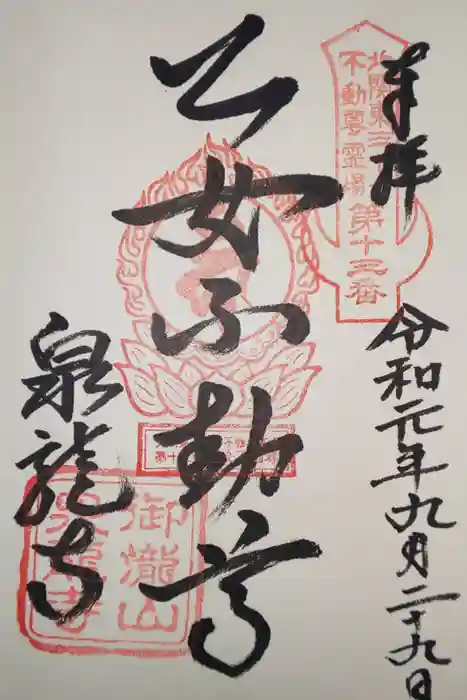 奉拝
令和元年九月二十九日
北関東三
不動尊霊場
第十三番
乙女不動尊
泉龍寺
御瀧山
泉龍寺